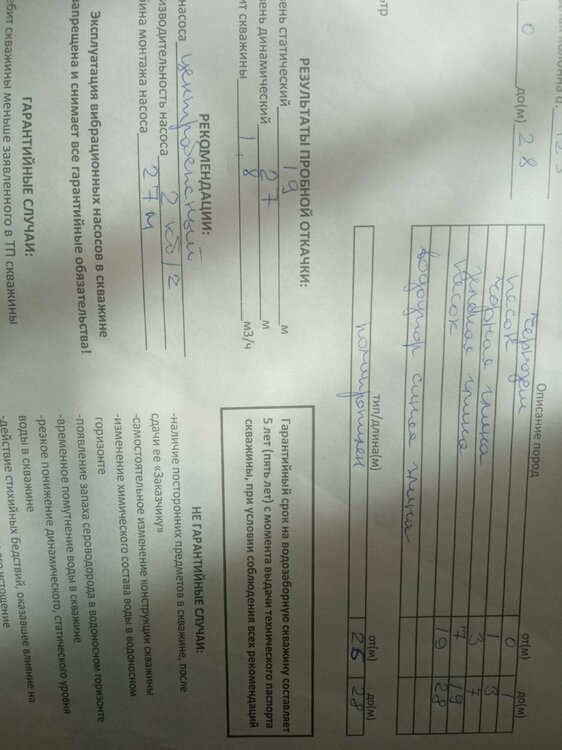 до(м) 28
Описание пород от(м) до(м)
чернозем 0 1
песок 1 3
черная глина 3 7
глина 7 19
песок 19 28
водоупор синяя глина
тип/длина(м) от(м) до(м)
полипропилен 26 28
РЕЗУЛЬТАТЫ ПРОБНОЙ ОТКАЧКИ:
статический 19 м
динамический 27 м
скважины 1,8 м3/ч
РЕКОМЕНДАЦИИ:
насоса центробежный
насоса 2 куб/
монтажа насоса 27м
Эксплуатация вибрационных насосов в скважине
запрещена и снимает все гарантийные обязательства!
ГАРАНТИЙНЫЕ СЛУЧАИ:
скважины меньше заявленного в ТП скважины
Гарантийный срок на водозаборную скважину составляет
5 лет (пять лет) с момента выдачи технического паспорта
скважины, при условии соблюдения всех рекомендаций
НЕ ГАРАНТИЙНЫЕ СЛУЧАИ:
-наличие посторонних предметов в скважине, после
сдачи ее «Заказчику»
-самостоятельное изменение конструкции скважины
-изменение химического состава воды в водоносном
горизонте
-появление запаха сероводорода в водоносном горизонте
-временное помутнение воды в скважине
-резкое понижение динамического, статического уровня
воды в скважине
-действие стихийных бедствий, оказавшее влияние на
истощение